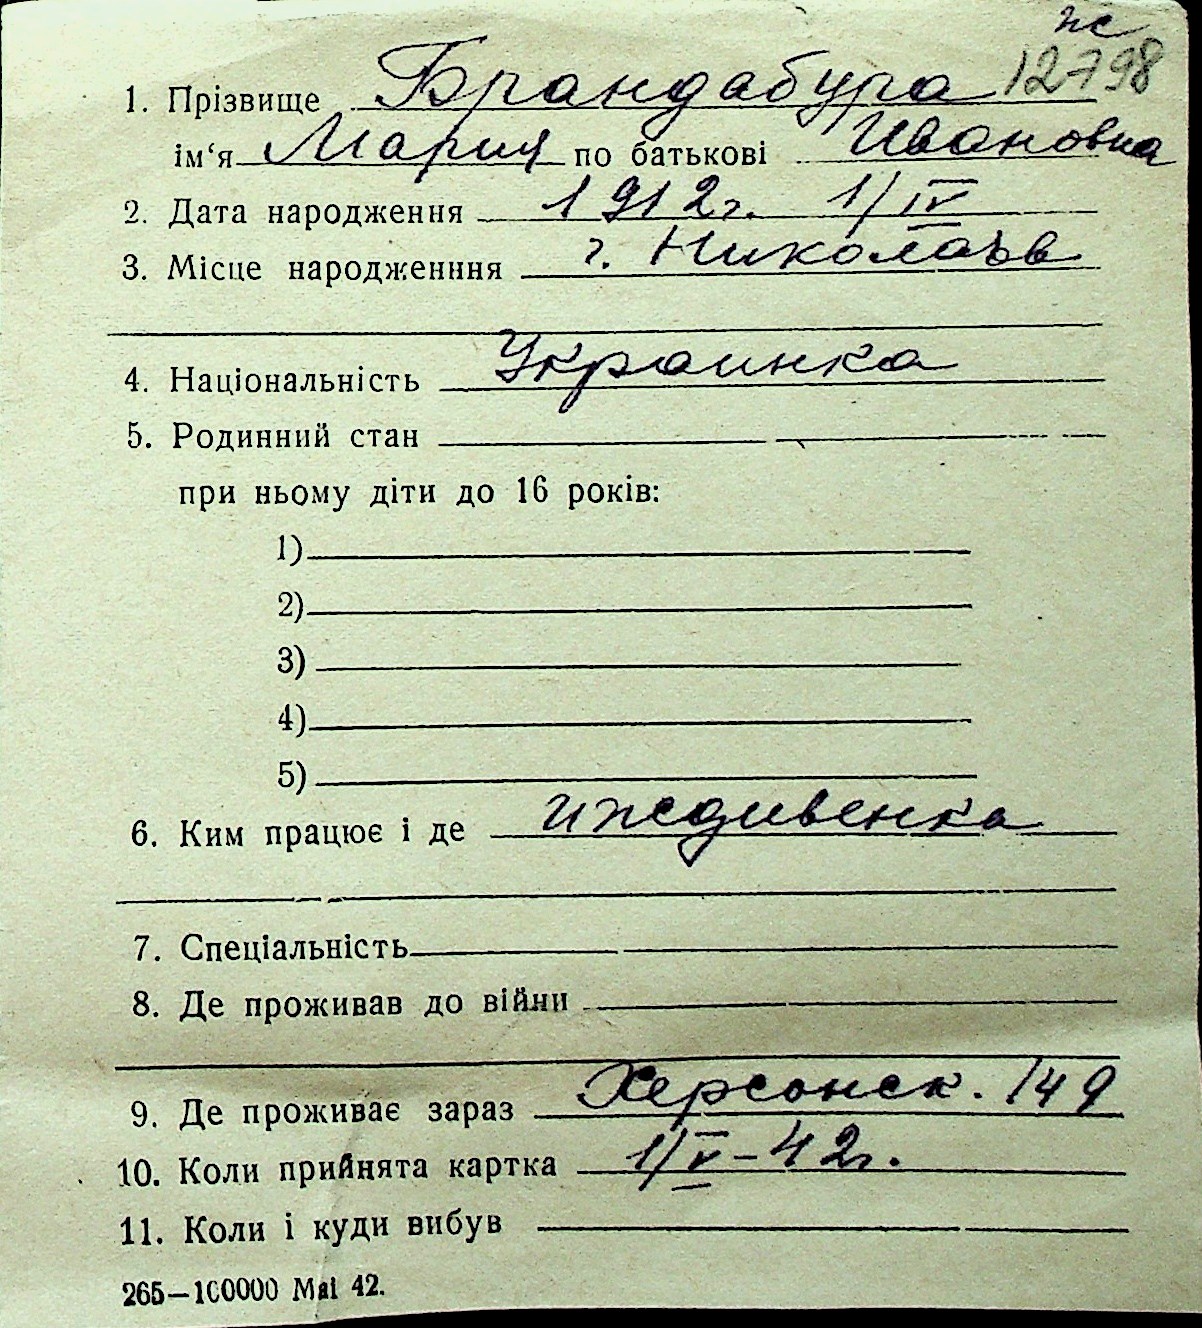 жс
12798
1. Прізвище Брандабура
ім‘я Мария по батькові Ивановна
2. Дата народження 1912г. 1/IV
3. Місце народженння г. Николаѣв
4. Національність Украинка
5. Родинний стан
при ньому діти до 16 років:
1)
2)
3)
4)
5)
6. Ким працює і де иждивенка
7. Спеціальність
8. Де проживав до війни
9. Де проживає зараз Херсонск. 149
10. Коли прийнята картка 1/V-42г.
11. Коли і куди вибув
265—100000 Mai 42.